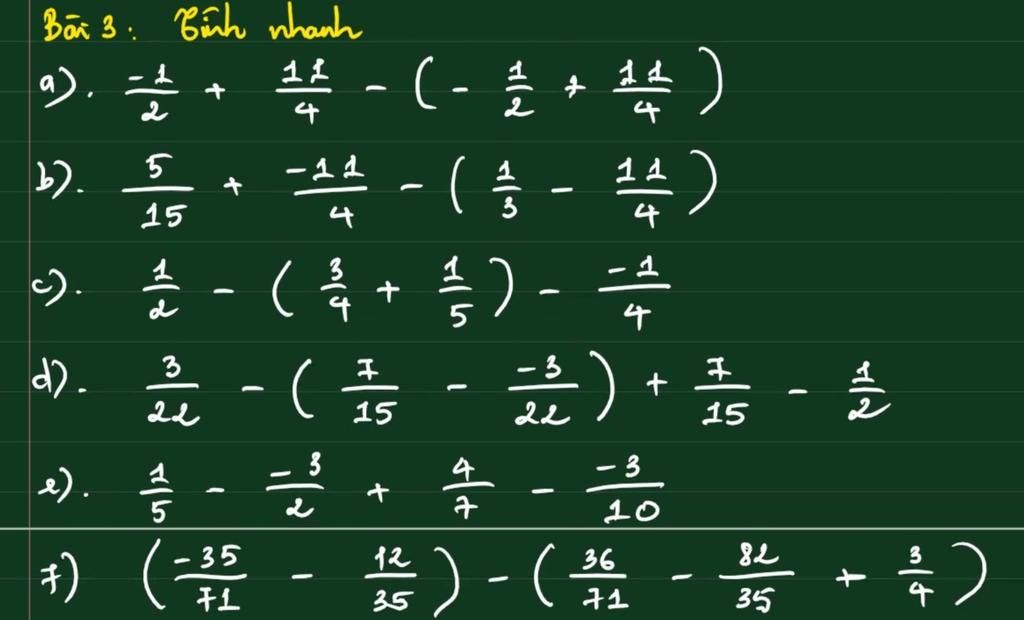 Bài 3: Tính nhanh
a). -1/2 + 11/4 - (- 1/2 + 11/4)
b). 5/15 + -11/4 - (1/3 - 11/4)
c). 1/2 - (3/4 + 1/5) - -1/4
d). 3/22 - (7/15 - -3/22) + 7/15 - 1/2
e). 1/5 - -3/2 + 4/7 - -3/10
f) (-35/71 - 12/35) - (36/71 - 82/35 + 3/4)